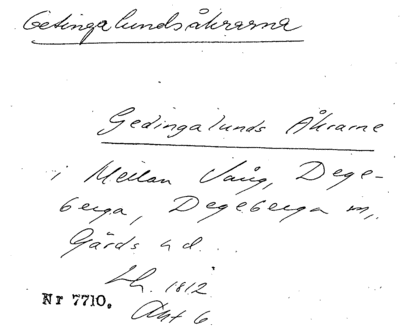 Getingalundsåkrarna
Gedingalunds Åkrarne
i Mellan Vång, Dege-
berga, Degeberga sn,
Gärds hd.
Lh. 1812
Nr 7710.
Akt 6